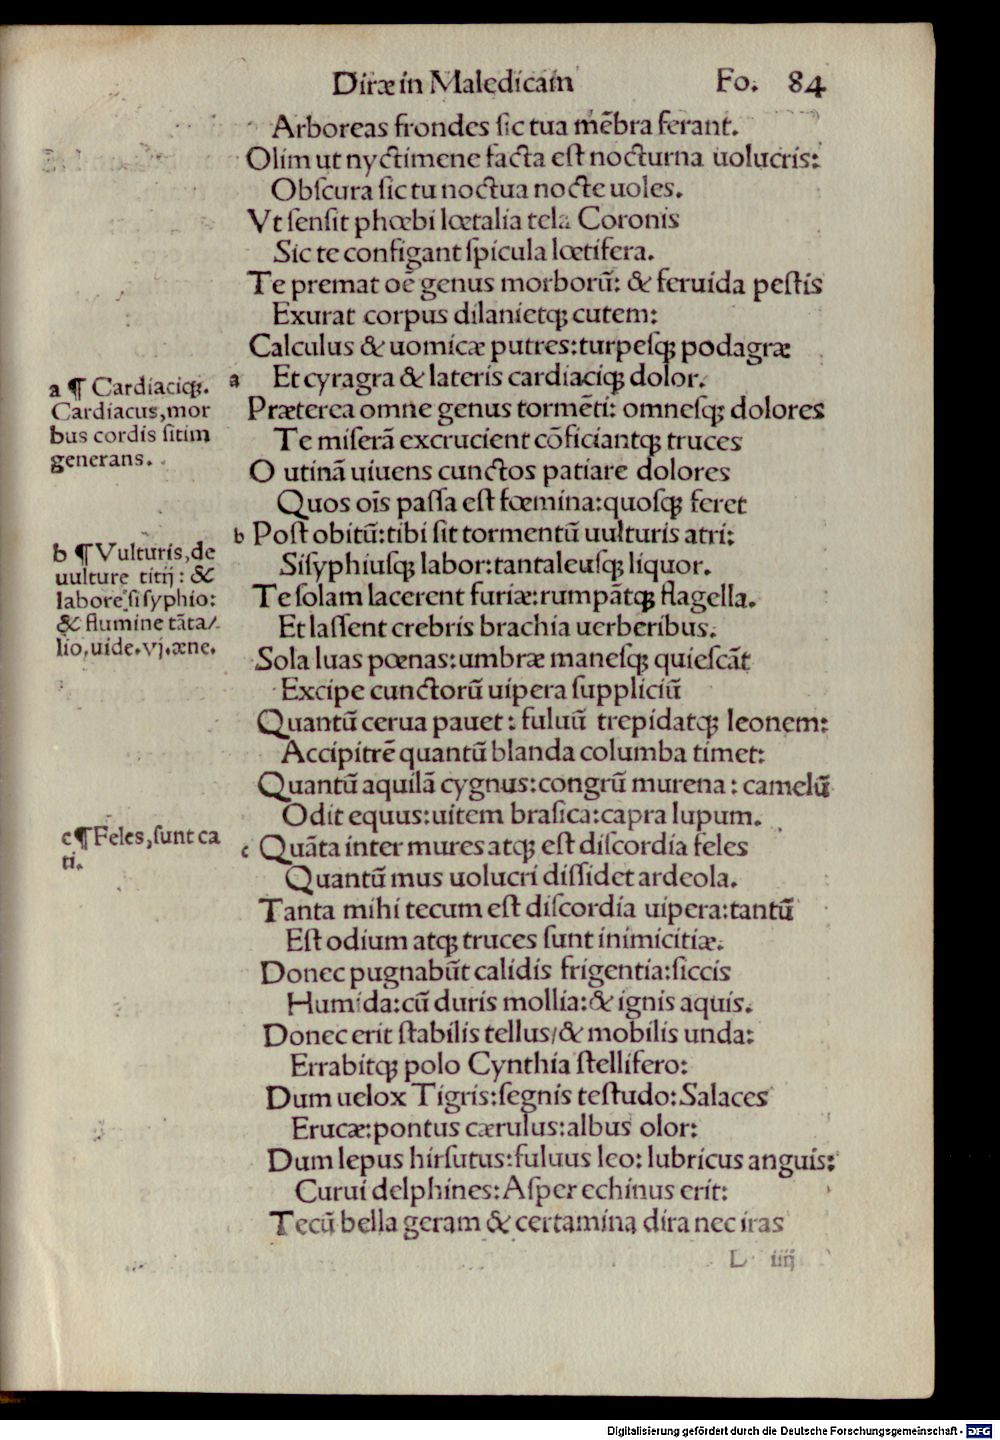 Diræ in Maledicam Fo. 84
Arboreas frondes ſic tua mẽbra ferant.
Olim ut nyctimene facta eſt nocturna uolucris:
Obſcura ſic tu noctua nocte uoles.
Vt ſenſit phœbi lœtalia tela Coronis
Sic te configant ſpicula lœtifera.
Te premat oẽ genus morborũ: & feruida peſtis
Exurat corpus dilanietqꝫ cutem:
Calculus & uomicæ putres: turpeſqꝫ podagræ
a Et cyragra & lateris cardiaciqꝫ dolor.
Præterea omne genus tormẽti: omneſqꝫ dolores
Te miſerã excrucient cõficiantqꝫ truces
O utinã uiuens cunctos patiare dolores
Quos oĩs paſſa eſt fœmina: quoſqꝫ feret
b Poſt obitũ: tibi ſit tormentũ uulturis atri:
Siſyphiuſqꝫ labor: tantaleuſqꝫ liquor.
Te ſolam lacerent furiæ: rumpãtqꝫ flagella.
Et laſſent crebris brachia uerberibus.
Sola luas pœnas: umbræ maneſqꝫ quieſcãt
Excipe cunctorũ uipera ſuppliciũ
Quantũ cerua pauet: fuluũ trepidatqꝫ leonem:
Accipitrẽ quantũ blanda columba timet:
Quantũ aquilã cygnus: congrũ murena: camelũ
Odit equus: uitem braſica: capra lupum.
c Quãta inter mures atqꝫ eſt diſcordia feles
Quantũ mus uolucri diſſidet ardeola.
Tanta mihi tecum eſt diſcordia uipera: tantũ
Eſt odium atqꝫ truces ſunt inimicitiæ.
Donec pugnabũt calidis frigentia: ſiccis
Humida: cũ duris mollia: & ignis aquis.
Donec erit ſtabilis tellus/ & mobilis unda:
Errabitqꝫ polo Cynthia ſtellifero:
Dum uelox Tigris: ſegnis teſtudo: Salaces
Erucæ: pontus cærulus: albus olor:
Dum lepus hirſutus: fuluus leo: lubricus anguis:
Curui delphines: Aſper echinus erit:
Tecũ bella geram & certamina dira nec iras
L iiij
a ¶ Cardiaciqꝫ.
Cardiacus, mor
bus cordis ſitim
generans.
b ¶ Vulturis, de
uulture titij: &
labore ſiſyphio:
& flumine tãta/
lio, uide. vj. æne.
c ¶ Feles, ſunt ca
ti.
Digitalisierung gefördert durch die Deutsche Forschungsgemeinschaft - DFG